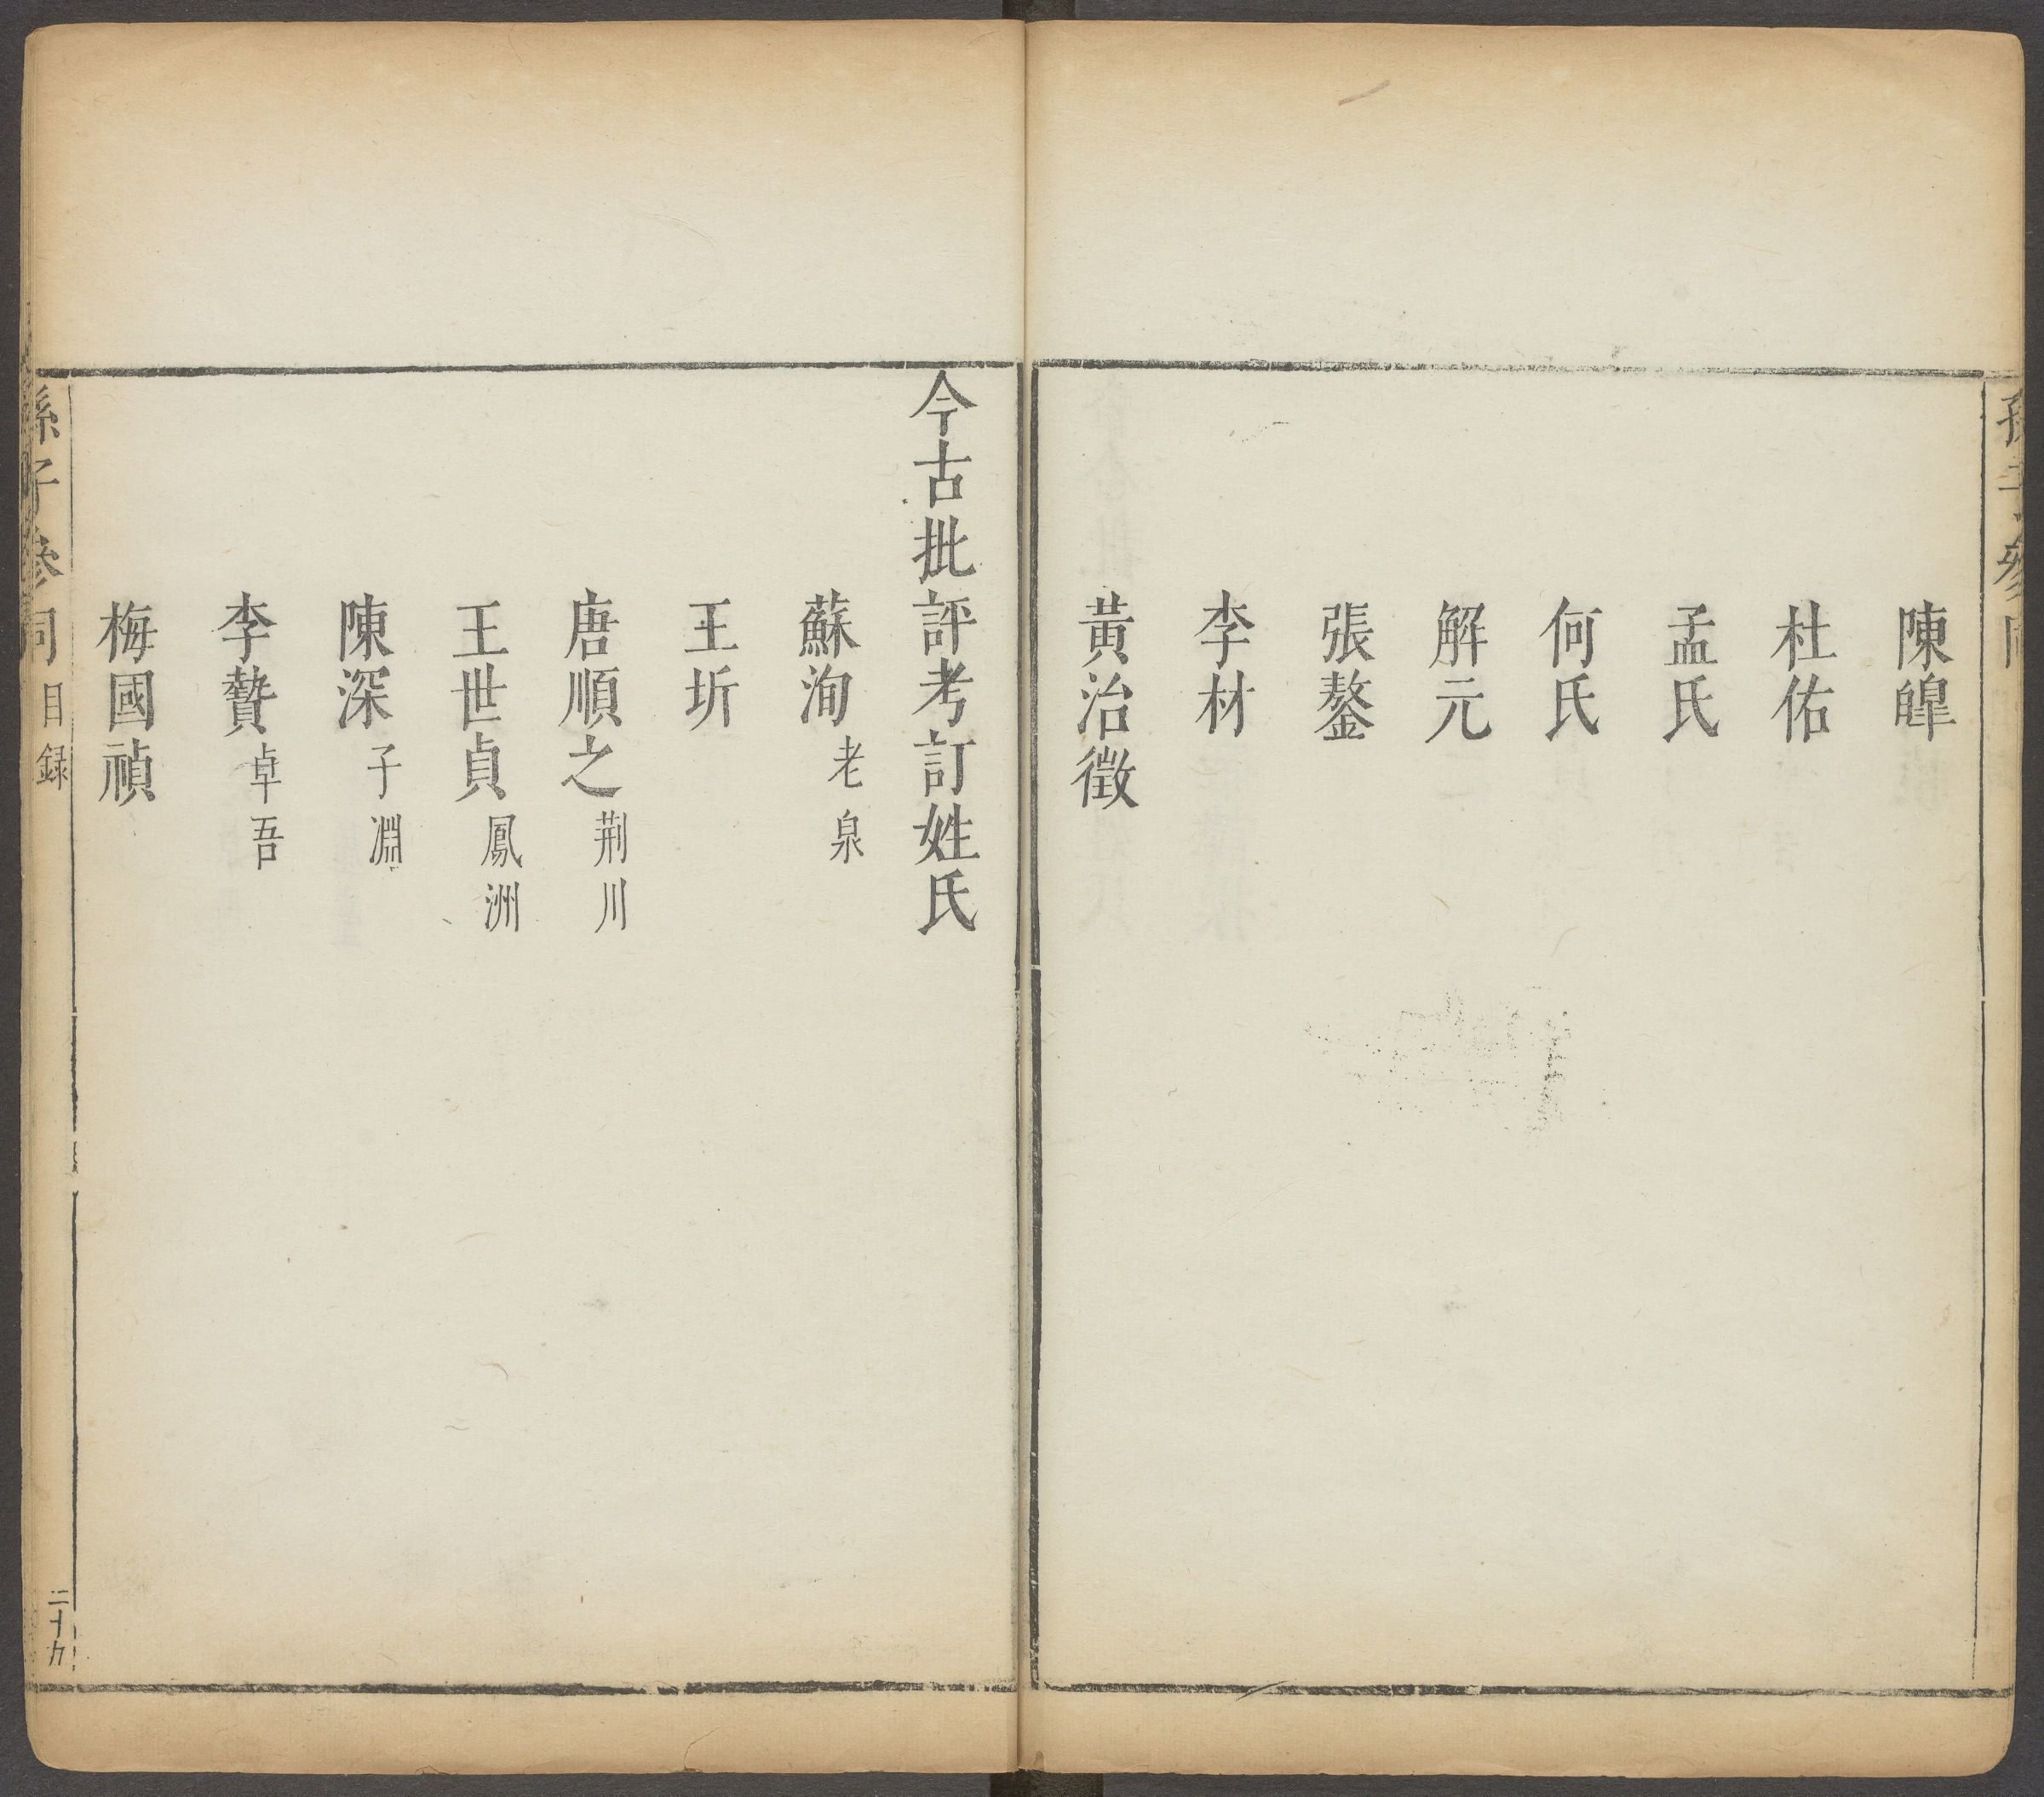 陳皥
杜佑
孟氏
何氏
解元
張鏊
李材
黃治徵
今古批評考訂姓氏
蘇洵老泉
王圻
唐順之荆川
王世貞鳳洲
陳深子淵
李贄卓吾
梅國禎
孫子參同 目録 二十九